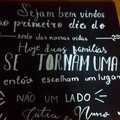 Sejam bem vindos
ao primeiro dia do
resto das nossas vidas
Hoje duas famílias
SE TORNAM UMA
então escolham um lugar
NÃO UM LADO
Júlia e Nuno